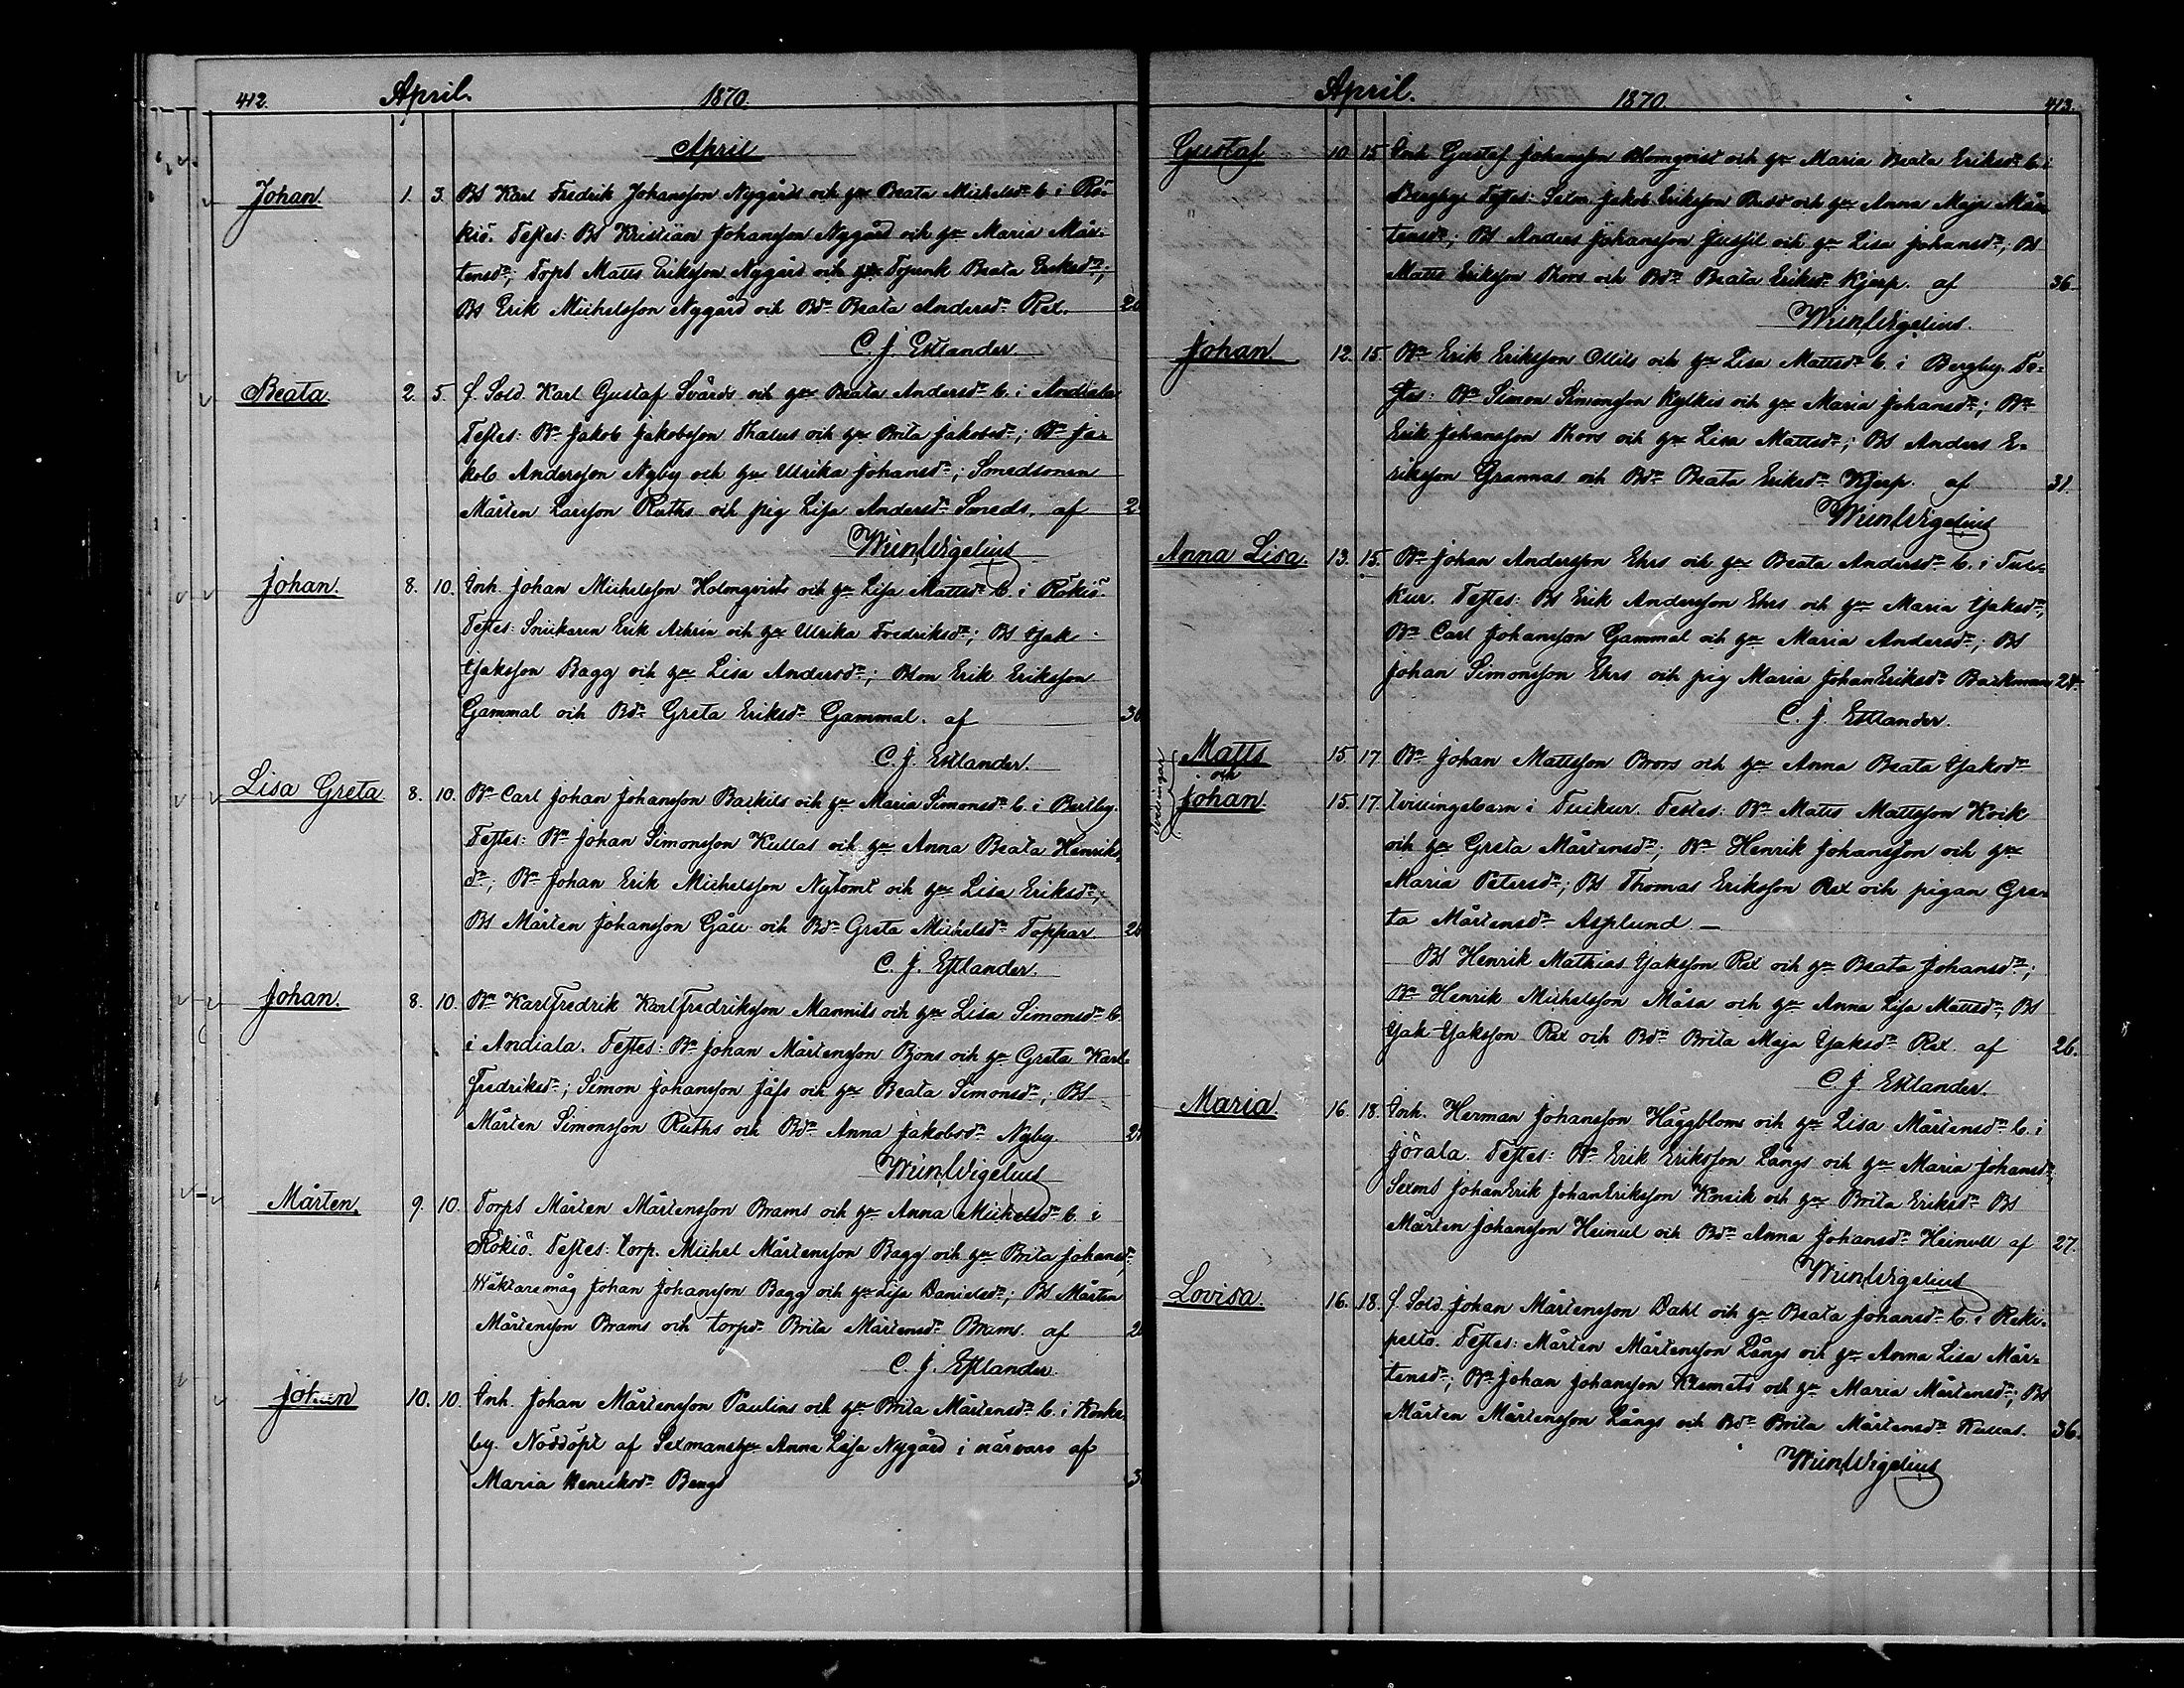 412. April. 1870.
April
Johan. 1. 3. Bs Karl Fredrik Johansson Nygårds och hu Beata Michelsdr b. i Rö-
kiö. Testes: Bs Kristian Johansson Nygård och hu Maria Mår-
tensdr; Torps Matts Eriksson Nygård och Beata Eriksdr;
Bs Erik Michelsson Nygård och Bdr Beata Andersdr Rex.
C. J. Estlander.
Beata 2. 5. f. Sold. Karl Gustaf Svärds och hu Beata Andersdr b. i Andiala
Testes: Bn Jakob Jakobsson Thalus och hu Brita Jakobsdr; Bn Ja-
kob Andersson Nyby och hu Ulrika Johansdr; Smedsonen
Mårten Larsson Ruths och pig Lisa Andersdr Smeds. af
Wilh. Wigelius
Johan. 8. 10. Inh. Johan Michelsson Holmqvists och hu Lisa Mattsdr b. i Rökiö.
Testes: Snickaren Erik Achrén och hu Ulrika Fredriksdr; Bs Isak
Isaksson Bagg och hu Lisa Andersdr; Bson Erik Eriksson
Gammal och Bdr Greta Eriksdr Gammal. af 30
C. J. Estlander.
Lisa Greta 8. 10. Bn Carl Johan Johansson Backils och hu Maria Simonsdr b. i Bertby.
Testes: Bn Johan Simonsson Kullas och hu Anna Beata Henriks
dr; Bn Johan Erik Michelsson Nytomt och hu Lisa Eriksdr;
Bs Mårten Johansson Gåll och Bdr Greta Michelsdr Toppar
C. J. Estlander.
Johan. 8. 10. Bn KarlFredrik KarlFredriksson Mannils och hu Lisa Simonsdr b.
i Andiala. Testes: Bn Johan Mårtensson Bjons och hu Greta Karl-
Fredriksdr; Simon Johansson Jåfs och hu Beata Simonsdr; Bs
Mårten Simonsson Ruths och Bdr Anna Jakobsdr Nyby.
Wilh. Wigelius
Mårten. 9. 10. Torps Mårten Mårtensson Brams och hu Anna Michelsdr b. i
Rökiö. Testes: torp. Michel Mårtensson Bagg och hu Brita Johansdr;
Wäktaremåg Johan Johansson Bagg och hu Lisa Danielsdr; Bs Mårten
Mårtensson Brams och torpdr Brita Mårtensdr Brams. af
C. J. Estlander.
Johan 10. 10. Inh. Johan Mårtensson Paulins och hu Brita Mårtensdr b. i Koska-
by. Nöddöpt af Sexmanshu Anna Lisa Nygård i närvaro af
Maria Henriksdr Bengs
April. 1870. 413.
Gustaf 10. 15. Inh. Gustaf Johansson Blomqvist och hu Maria Beata Eriksdr b. i
Bergby. Testes: Jakob Eriksson och hu Anna Maja Mår-
tensdr; Bs Anders Johansson Jussil och hu Lisa Johansdr; Bs
Matts Eriksson Thors och Bdr Beata Eriksdr Kjerp. af 36.
Wilh. Wigelius.
Johan 12. 15. Bn Erik Eriksson Ollils och hu Lisa Mattsdr b. i Bergby. Te-
stes: Bn Simon Simonsson Kylkis och hu Maria Johansdr; Bn
Erik Johansson Thors och hu Lisa Mattsdr; Bs Anders E-
riksson Grannas och Bdr Beata Eriksdr Kjerp. af 31.
Wilh. Wigelius
Anna Lisa. 13. 15. Bn Johan Andersson Ehrs och hu Beata Andersdr b. i Tuc-
kur. Testes: Bs Erik Andersson Ehrs och hu Maria Isaksdr;
Bn Carl Johansson Gammal och hu Maria Andersdr; Bs
Johan Simonsson Ehrs och pig Maria JohanEriksdr Backman 24.
C. J. Estlander.
Matts 15 17. Bn Johan Mattsson Brors och hu Anna Beata Isaksdr
och
tvillingar
Johan. 15. 17. tvillingebarn i Tuckur. Testes: Bn Matts Mattsson Kvik
och hu Greta Mårtensdr; Bn Henrik Johansson och hu
Maria Petersdr; Bs Thomas Eriksson Rex och pigan Gre-
ta Mårtensdr Asplund —
Bs Henrik Mathias Isaksson Rex och hu Beata Johansdr;
Bn Henrik Michelsson Måsa och hu Anna Lisa Mattsdr; Bs
Isak Isaksson Rex och Bdr Brita Maja Isaksdr Rex. af 26.
C. J. Estlander.
Maria. 16. 18. Inh. Herman Johansson Häggbloms och hu Lisa Mårtensdr b. i
Jörala. Testes: Bn Erik Eriksson Långs och hu Maria Johansdr;
Sexms JohanErik JohanEriksson Knsik och hu Brita Eriksdr Bs
Mårten Johansson Heinull och Bdr Anna Johansdr Heinull af 27.
Wilh. Wigelius
Lovisa. 16. 18. f. Sold. Johan Mårtensson Dahl och hu Beata Johansdr b. i Reki-
pelto. Testes: Mårten Mårtensson Långs och hu Anna Lisa Mår-
tensdr; Bn Johan Johansson Klemets och hu Maria Mårtensdr; Bs
Mårten Mårtensson Långs och Bdr Brita Mårtensdr Kullas. 36.
Wilh. Wigelius